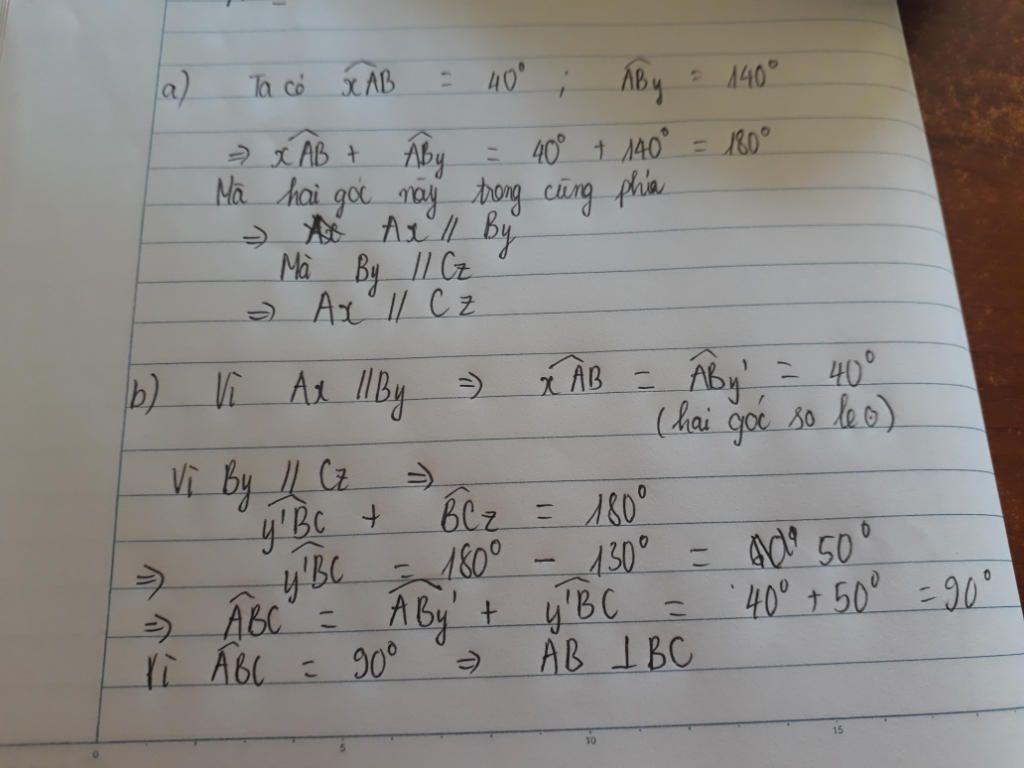 a) Ta có xÂB = 40° ; AB̂y = 140°
⇒ xÂB + AB̂y = 40° + 140° = 180°
Mã hai góc nãy trong cũng phía
⇒ Ax // By
Mà By // Cz
⇒ Ax // Cz
b) Vì Ax // By ⇒ xÂB = AB̂y' = 40°
(hai góc so le)
Vì By // Cz ⇒
y'B̂C + BĈz = 180°
⇒ y'B̂C = 180° - 130° = 50°
⇒ AB̂C = AB̂y' + y'B̂C = 40° + 50° = 90°
Vì AB̂C = 90° ⇒ AB ⊥ BC
0 5 10 15